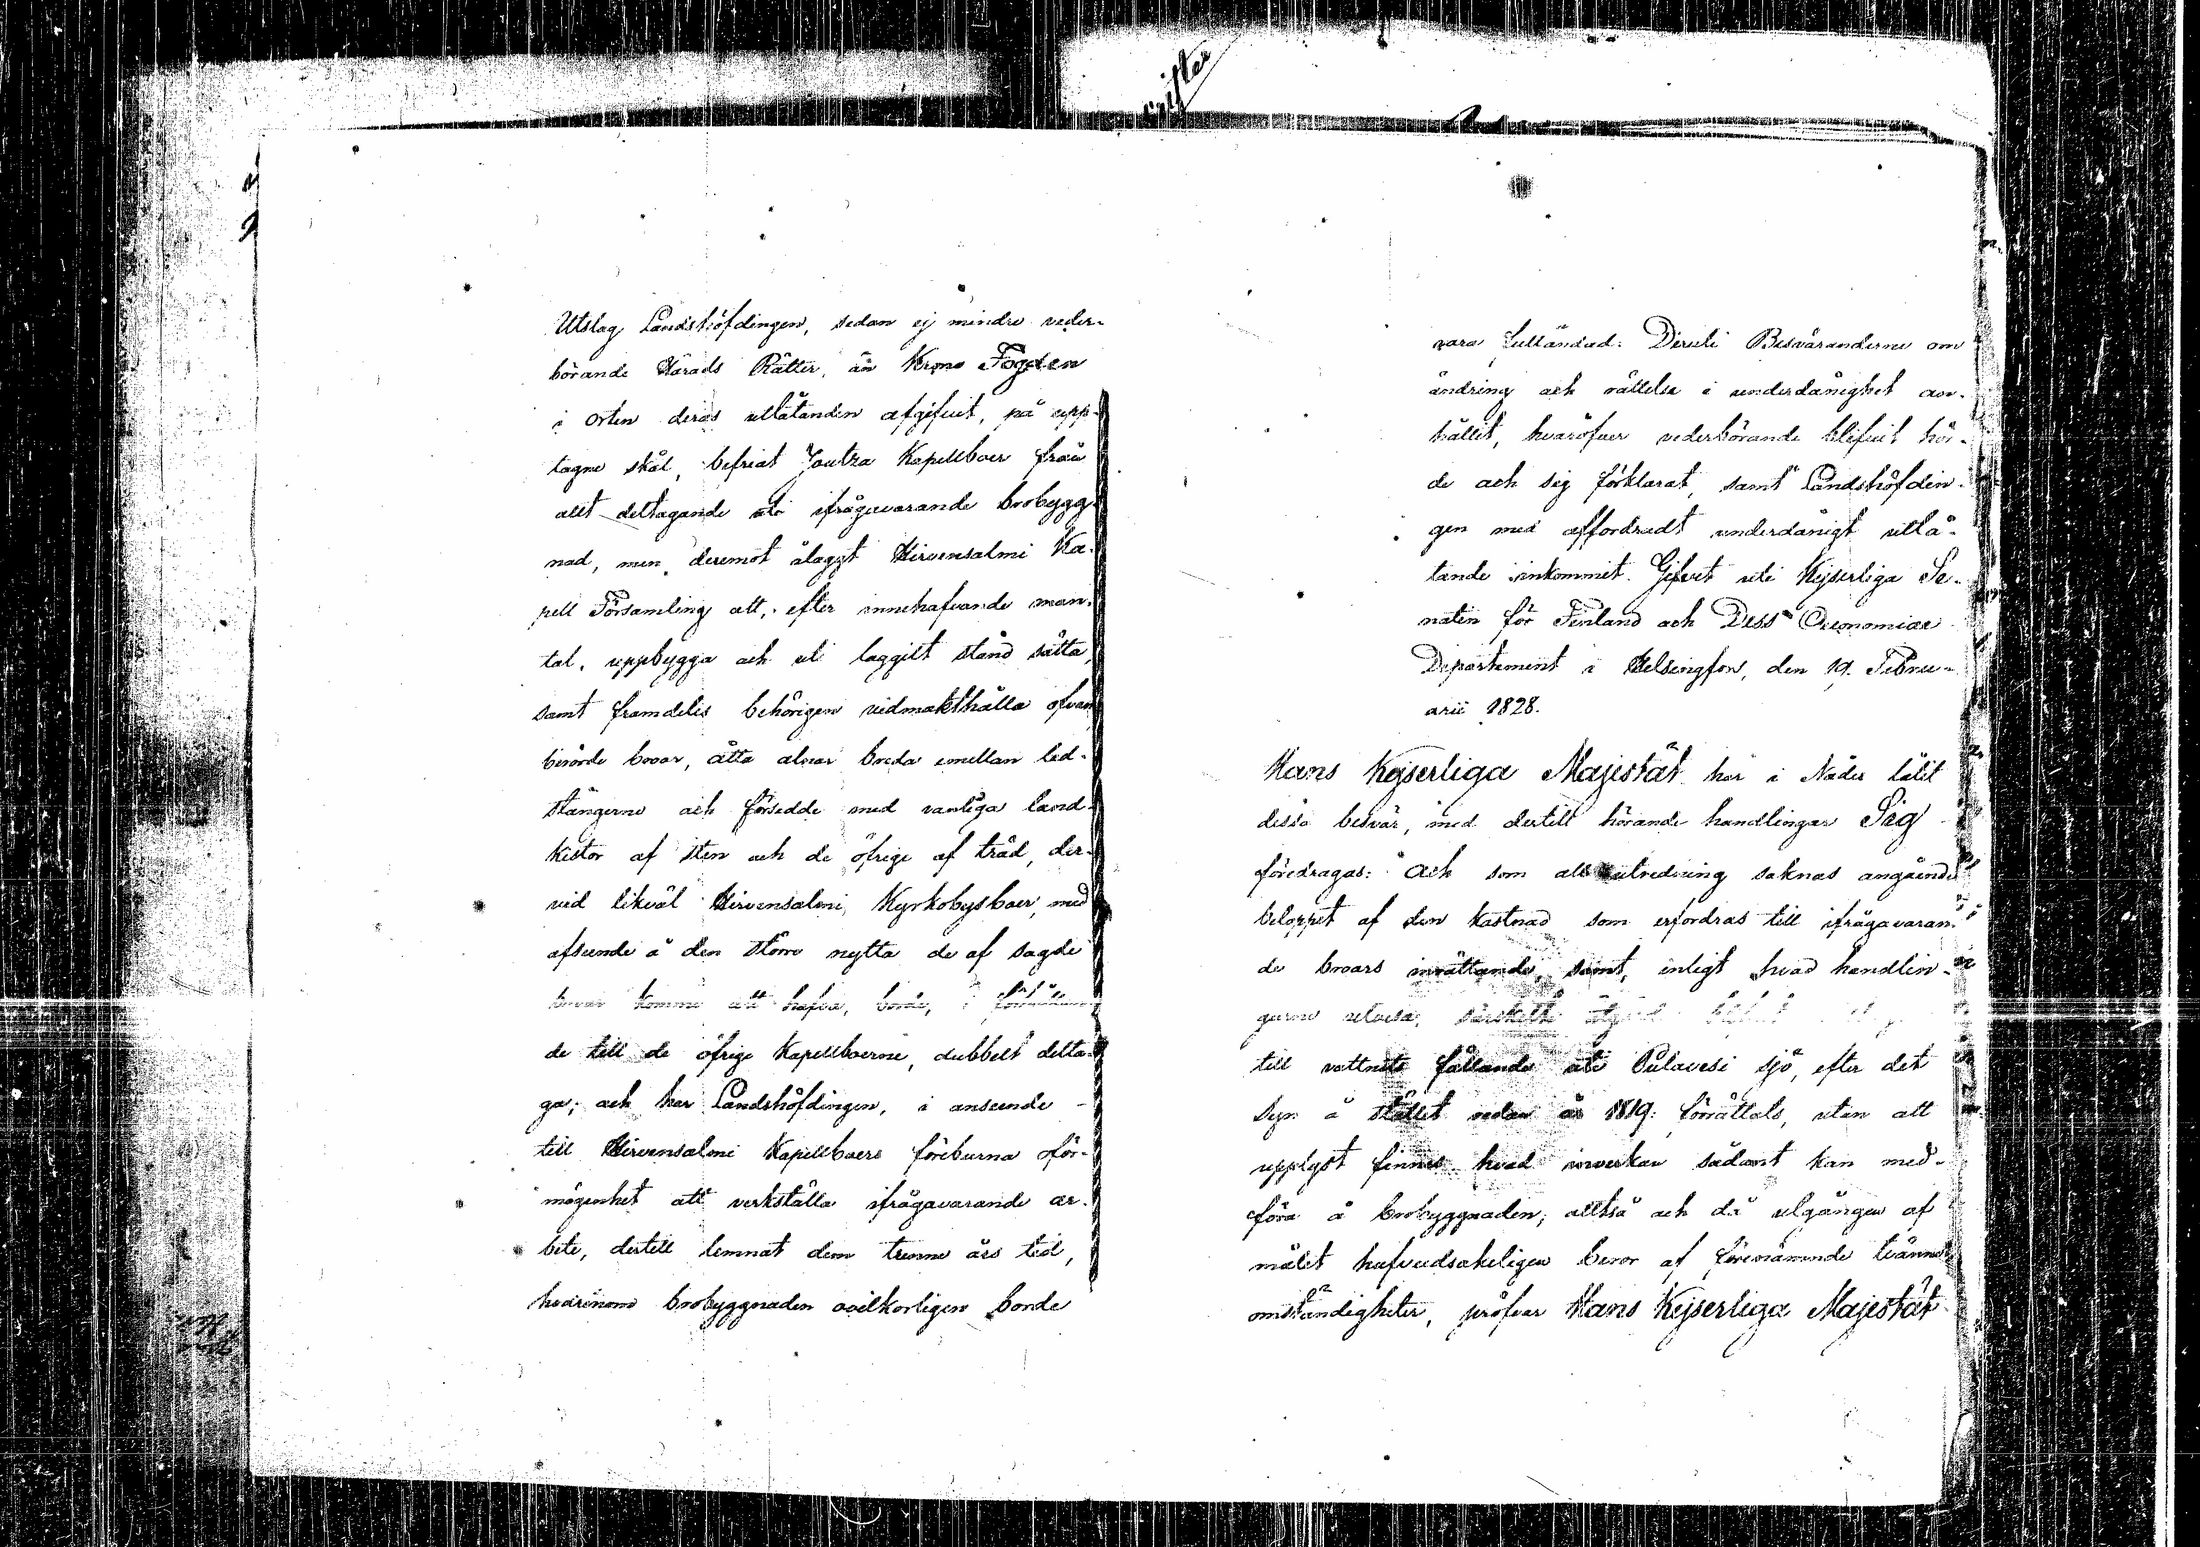 Utslag Landshöfdingen, sedan ej mindre veder-
börande Härads Rätter, än Krono Fogden
i orten deras utlåtanden afgifvit, på upp-
tagne skäl, befriat Joutza Kapellboer från
allt deltagande uti ifrågavarande brobygg-
nad, men deremot ålaggt Hirvensalmi Ka-
pell Församling att, efter innehafvande man-
tal, uppbygga och uti laggilt stånd sätta,
samt framdeles behörigen vidmakthålla ofvan
berörde broar, åtta alnar breda emellan led-
stängerne och försedde med vanliga land-
kistor af sten och de öfrige af träd, der-
vid likväl Hirvensalmi Kyrkobysboer, med
afseende å den större nytta de af sagde
broar komme att hafva, borde, i förhållan-
de till de öfrige Kapellboerne, dubbelt delta-
ga; och har Landshöfdingen, i anseende
till Hirvensalmi Kapellboers föreburna oför-
mögenhet att verkställa ifrågavarande ar-
bete, dertill lemnat dem trenne års tid,
hvarinom brobyggnaden ovilkorligen borde
vara fulländad: Deruti Besväranderne om
ändring och rättelse i underdånighet an-
hållit, hvaröfver vederbörande blifvit hör-
de och sig förklarat, samt Landshöfdin-
gen med affordradt underdånigt utlå-
tande inkommit. Gifvet uti Kejserliga Se-
naten för Finland och Dess Oeconomiae
Departement i Helsingfors, den 19. Febru-
arii 1828.
Hans Kejserliga Majestät har i Nåder låtit
dessa besvär, med dertill hörande handlingar Sig
föredragas: Och som all utredning saknas angående
beloppet af den kostnad som erfordras till ifrågavaran-
de broars inrättande, samt, enligt hvad handlin-
garne utvisa, särskilte
till vattnets fällande uti Pulavesi sjö, efter det
Syn å stället redan år 1819: förrättats, utan att
upplyst finnes hvad inverkan sådant kan med-
föra å brobyggnaden; alltså och då utgången af
målet hufvudsakeligen beror af förenämnde tvänne
omständigheter, pröfvar Hans Kejserliga Majestät